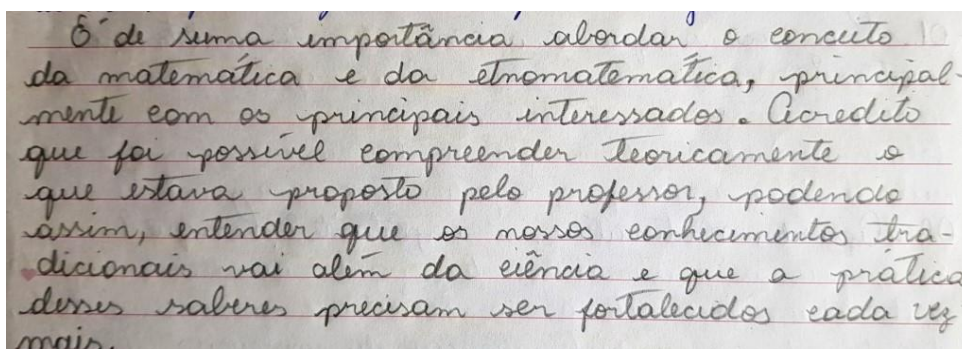 É de suma importância abordar o conceito
da matemática e da etnomatemática, principal-
mente com os principais interessados. Acredito
que foi possível compreender teoricamente o
que estava proposto pelo professor, podendo
assim, entender que os nossos conhecimentos tra-
dicionais vai além da ciência e que a prática
desses saberes precisam ser fortalecidos cada vez
mais.